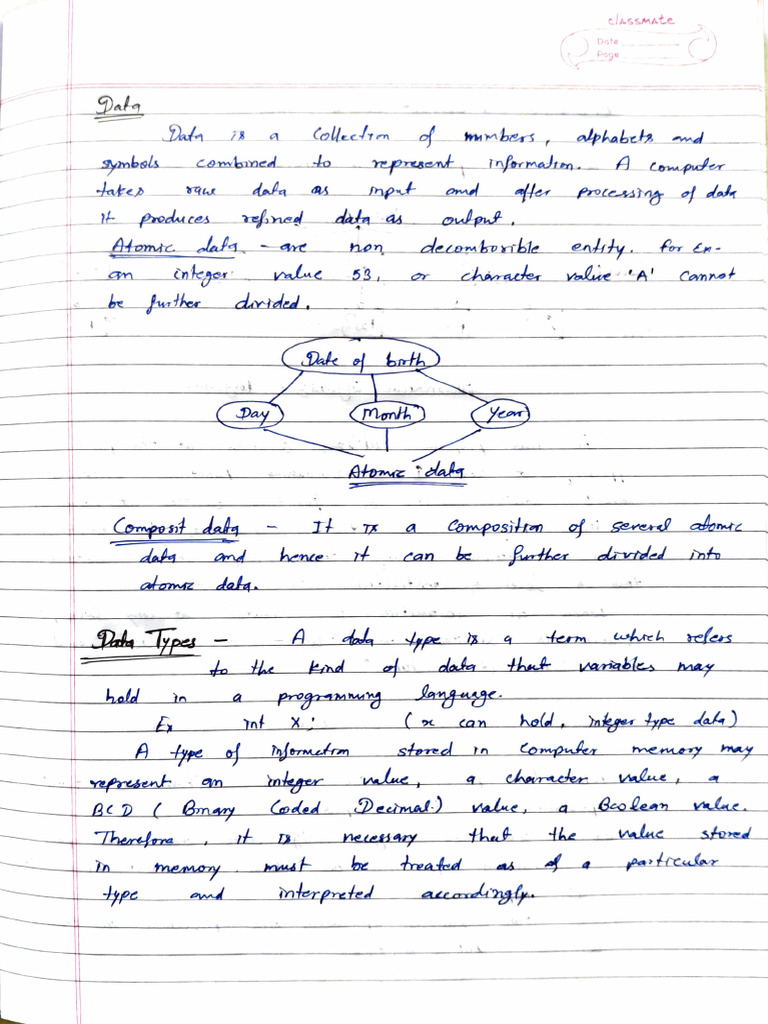 classmate
Date
Page
Data
Data is a collection of numbers, alphabets and
symbols combined to represent information. A computer
takes raw data as input and after processing of data
it produces refined data as output.
Atomic data - are non decomborible entity. for Ex-
an integer value 53, or character value 'A' cannot
be further divided.
Date of birth
Day Month Year
Atomic data
Composit data - It is a composition of several atomic
data and hence it can be further divided into
atomic data.
Data Types - A data type is a term which refers
to the kind of data that variables may
hold in a programming language.
Ex int X; (x can hold, integer type data)
A type of information stored in computer memory may
represent an integer value, a character value, a
BCD (Binary Coded Decimal) value, a Boolean value.
Therefore, it is necessary that the value stored
in memory must be treated as of a particular
type and interpreted accordingly.